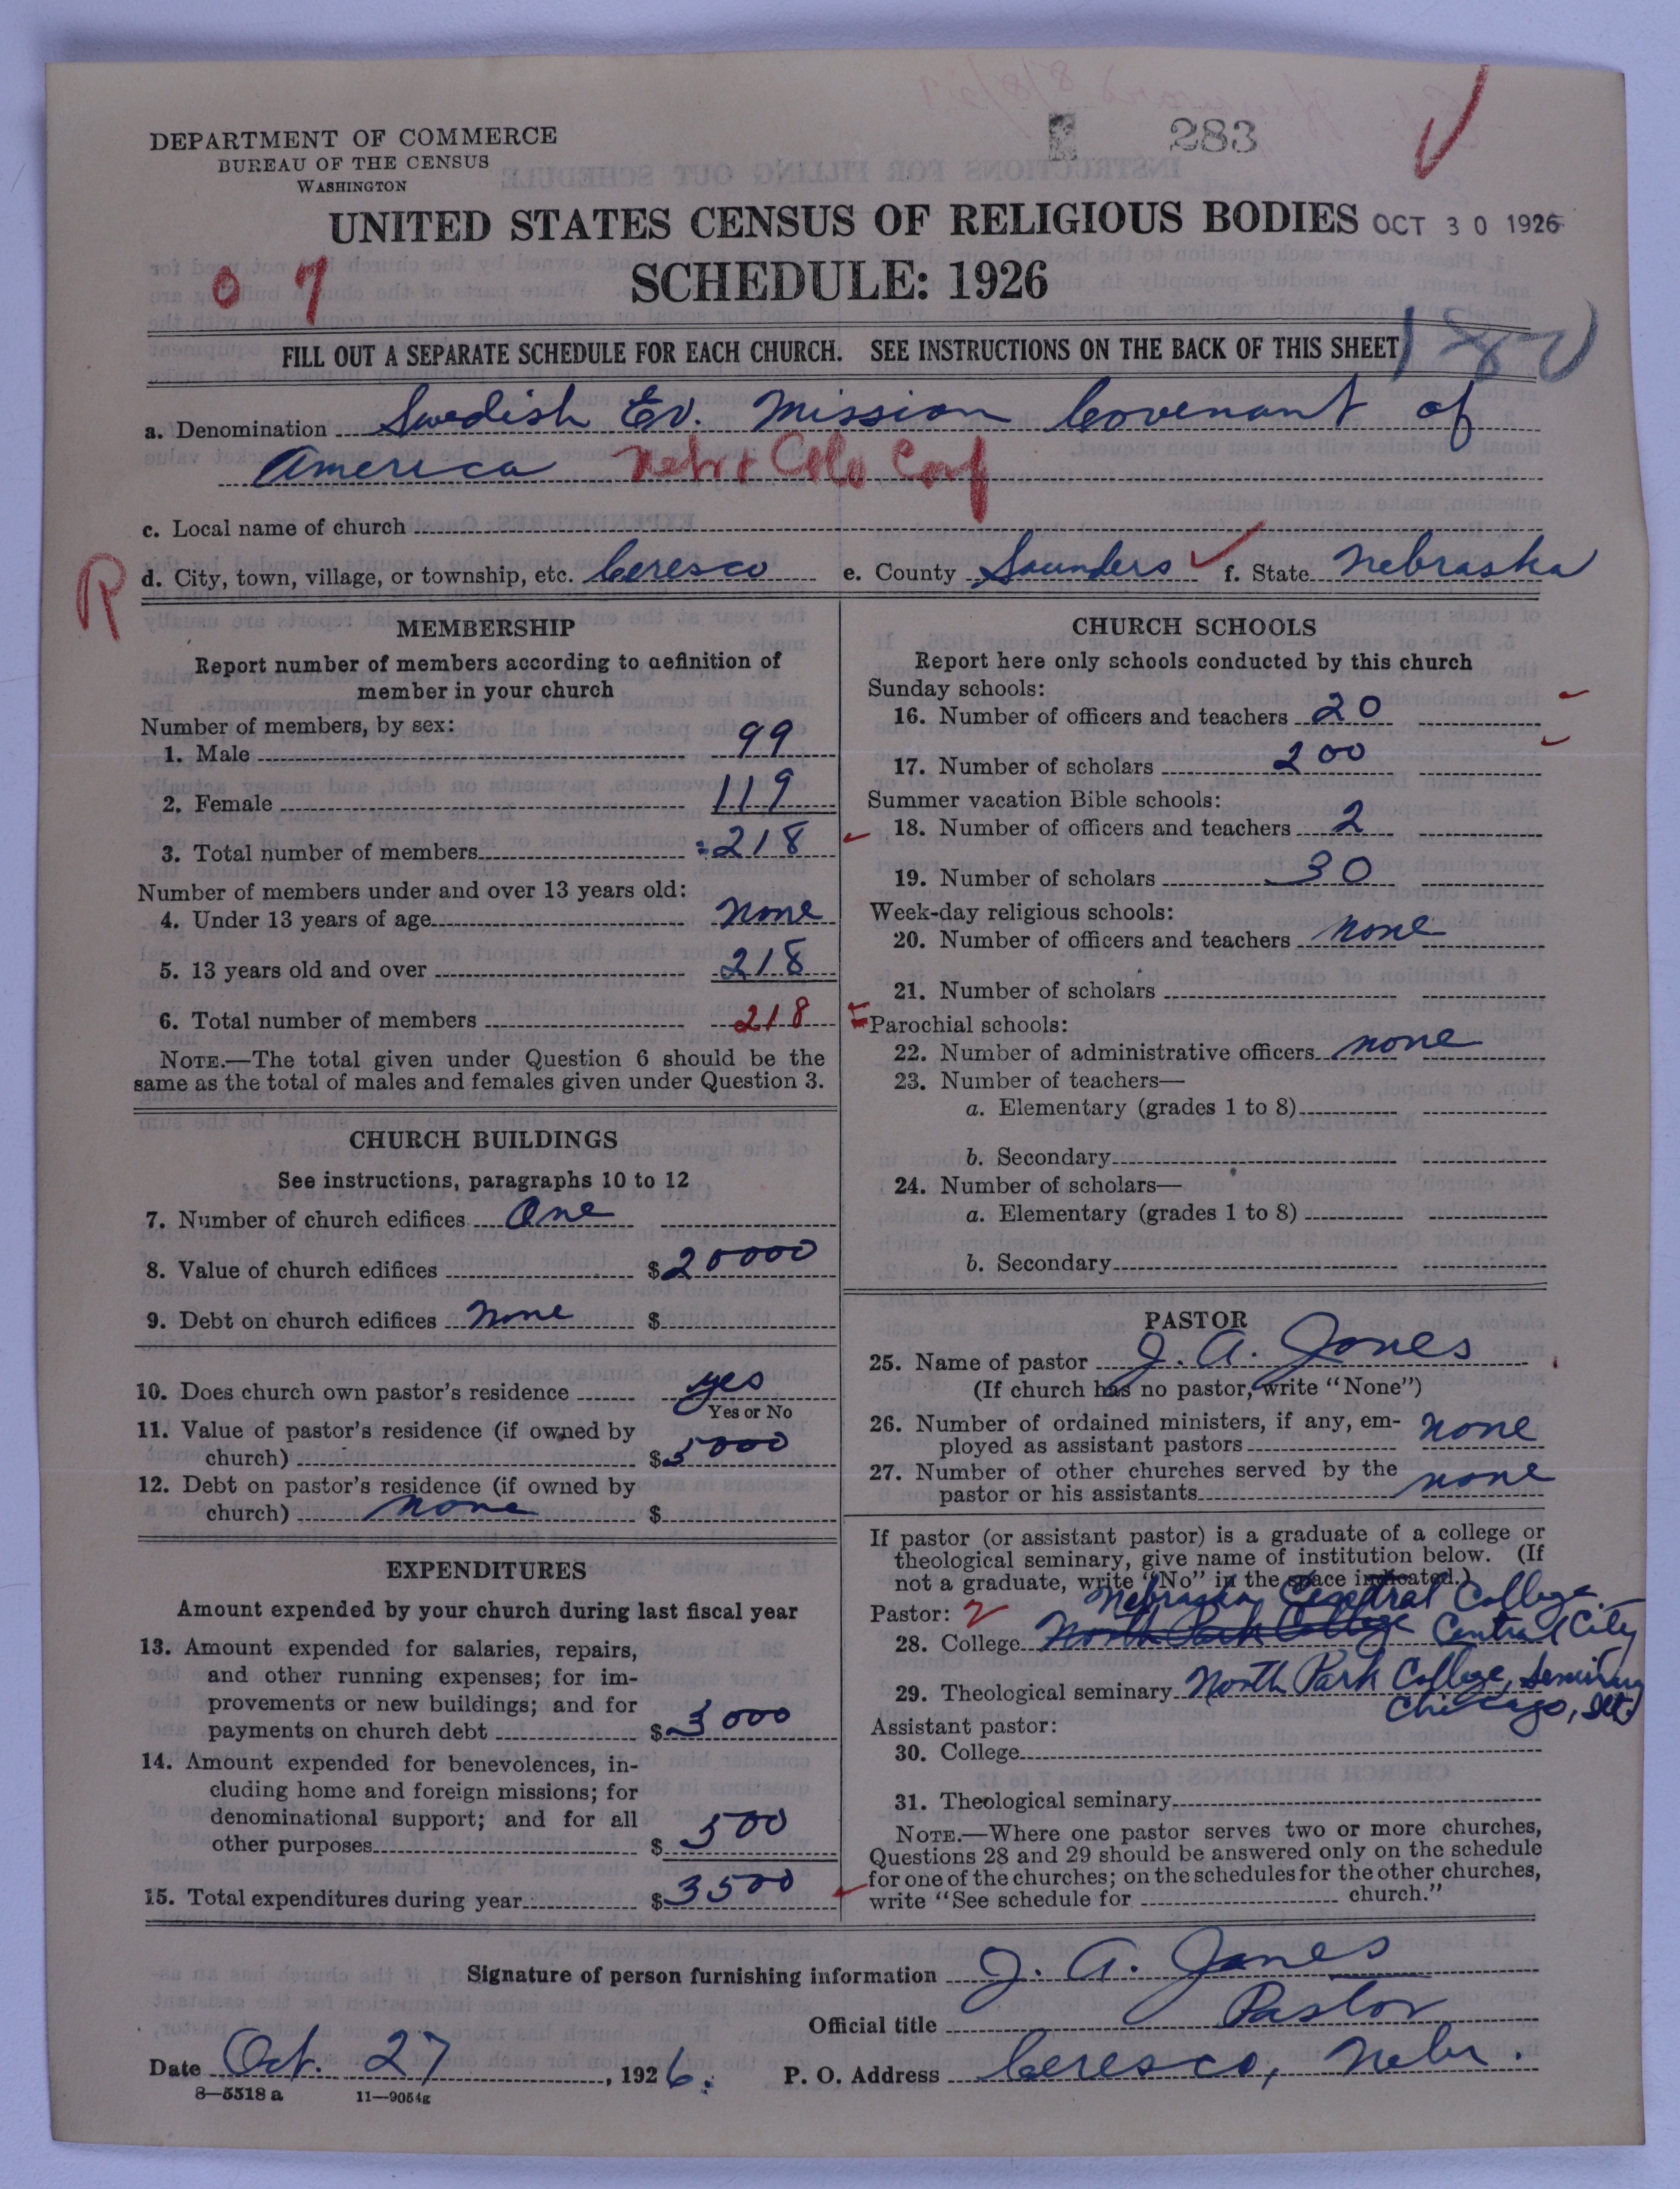 283
DEPARTMENT OF COMMERCE
BUREAU OF THE CENSUS
WASHINGTON
UNITED STATES CENSUS OF RELIGIOUS BODIES OCT 30 1926
SCHEDULE: 1926
0 7
FILL OUT A SEPARATE SCHEDULE FOR EACH CHURCH. SEE INSTRUCTIONS ON THE BACK OF THIS SHEET
180
a. Denomination Swedish Ev. Mission Covenant of
America Nebr Colo Conf
c. Local name of church
R
d. City, town, village, or township, etc. Ceresco e. County Saunders f. State Nebraska
MEMBERSHIP
Report number of members according to definition of
member in your church
Number of members, by sex:
1. Male 99
2. Female 119
3. Total number of members 218
Number of members under and over 13 years old:
4. Under 13 years of age none
5. 13 years old and over 218
6. Total number of members 218
NOTE.—The total given under Question 6 should be the
same as the total of males and females given under Question 3.
CHURCH BUILDINGS
See instructions, paragraphs 10 to 12
7. Number of church edifices One
8. Value of church edifices $20000
9. Debt on church edifices none $
10. Does church own pastor's residence yes
Yes or No
11. Value of pastor's residence (if owned by
church) $5000
12. Debt on pastor's residence (if owned by
church) none $
EXPENDITURES
Amount expended by your church during last fiscal year
13. Amount expended for salaries, repairs,
and other running expenses; for im-
provements or new buildings; and for
payments on church debt $3000
14. Amount expended for benevolences, in-
cluding home and foreign missions; for
denominational support; and for all
other purposes $500
15. Total expenditures during year $3500
CHURCH SCHOOLS
Report here only schools conducted by this church
Sunday schools:
16. Number of officers and teachers 20
17. Number of scholars 200
Summer vacation Bible schools:
18. Number of officers and teachers 2
19. Number of scholars 30
Week-day religious schools:
20. Number of officers and teachers none
21. Number of scholars
Parochial schools:
22. Number of administrative officers none
23. Number of teachers—
a. Elementary (grades 1 to 8)
b. Secondary
24. Number of scholars—
a. Elementary (grades 1 to 8)
b. Secondary
PASTOR
25. Name of pastor J. A. Jones
(If church has no pastor, write "None")
26. Number of ordained ministers, if any, em-
ployed as assistant pastors none
27. Number of other churches served by the
pastor or his assistants none
If pastor (or assistant pastor) is a graduate of a college or
theological seminary, give name of institution below. (If
not a graduate, write "No" in the space indicated.)
Nebraska Central College
Pastor: 2
28. College North Park College Central City
29. Theological seminary North Park College, Seminary
Chicago, Ill.
Assistant pastor:
30. College
31. Theological seminary
NOTE.—Where one pastor serves two or more churches,
Questions 28 and 29 should be answered only on the schedule
for one of the churches; on the schedules for the other churches,
write "See schedule for church."
Signature of person furnishing information J. A. Jones
Official title Pastor
Date Oct. 27, 1926. P. O. Address Ceresco, Nebr.
8—5518 a 11—9054g